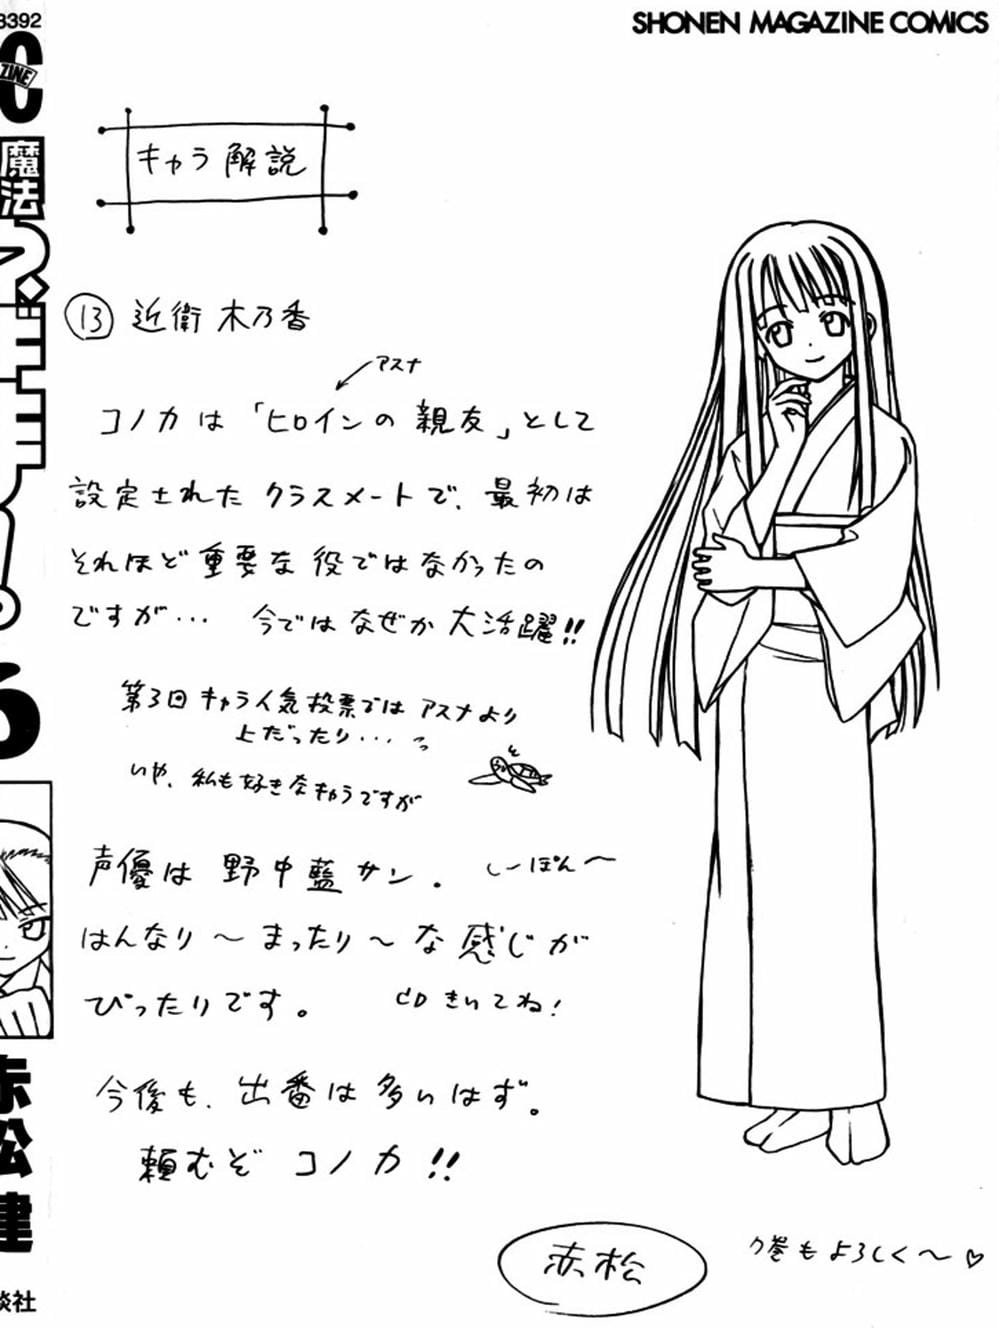 SHONEN MAGAZINE COMICS
3392
ZINE
魔法
ネギま!
6
赤松健
談社
キャラ解説
⑬ 近衛 木乃香
アスナ
コノカは「ヒロインの親友」として
設定されたクラスメートで、最初は
それほど重要な役ではなかったの
ですが… 今ではなぜか大活躍!!
第3回キャラ人気投票ではアスナより
上だったり…
いや、私も好きなキャラですが
声優は 野中藍サン。 しーぽん〜
はんなり〜まったり〜な感じが
ぴったりです。 CDきいてね!
今後も、出番は多いはず。
頼むぞ コノカ!!
赤松
7巻もよろしく〜♡